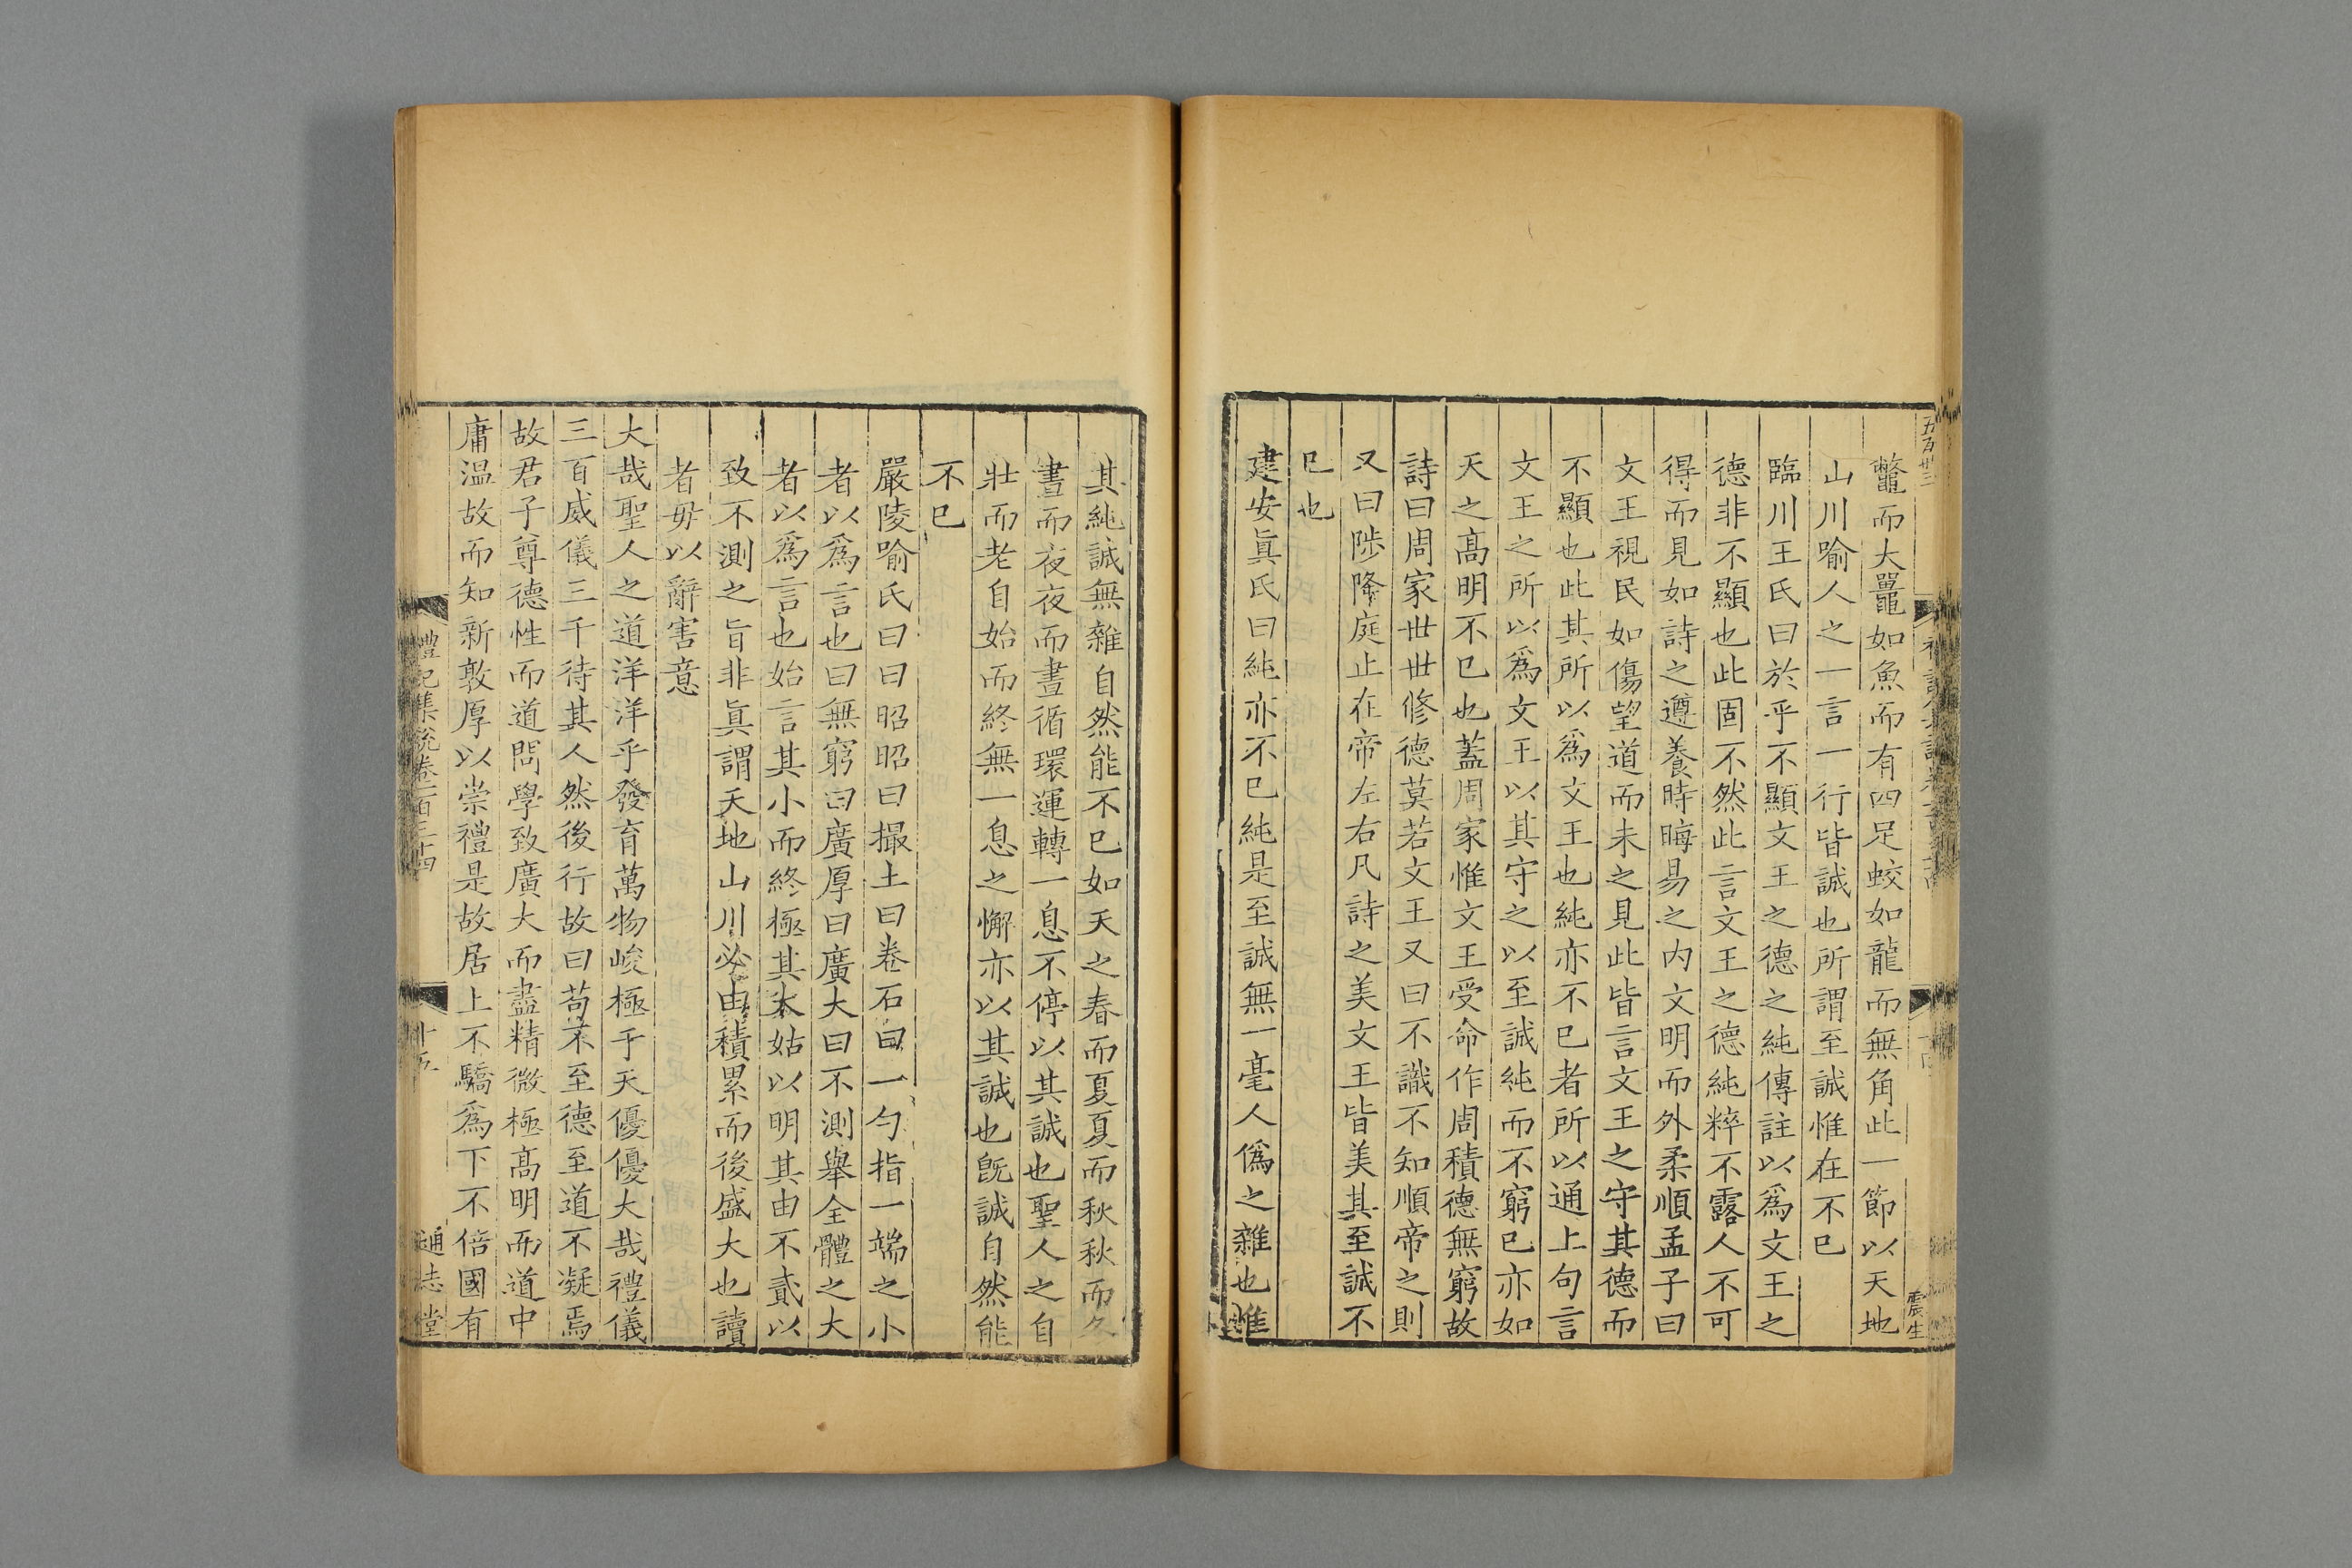 鼈而大鼉如魚而有四足蛟如龍而無角此一節以天地
山川喻人之一言一行皆誠也所謂至誠惟在不已
臨川王氏曰於乎不顯文王之德之純傳註以爲文王之
德非不顯也此固不然此言文王之德純粹不露人不可
得而見如詩之遵養時晦易之内文明而外柔順孟子曰
文王視民如傷望道而未之見此皆言文王之守其德而
不顯也此其所以爲文王也純亦不已者所以通上句言
文王之所以爲文王以其守之以至誠純而不窮已亦如
天之高明不已也蓋周家惟文王受命作周積德無窮故
詩曰周家世世修德莫若文王又曰不識不知順帝之則
又曰陟降庭止在帝左右凡詩之美文王皆美其至誠不
已也
建安眞氏曰純亦不已純是至誠無一毫人僞之雜也惟
五百卅三
十四
震生
其純誠無雜自然能不已如天之春而夏夏而秋秋而冬
晝而夜夜而晝循環運轉一息不停以其誠也聖人之自
壯而老自始而終無一息之懈亦以其誠也旣誠自然能
不已
嚴陵喻氏曰曰昭昭曰撮土曰卷石曰一勺指一端之小
者以爲言也曰無窮曰廣厚曰廣大曰不測舉全體之大
者以爲言也始言其小而終極其大姑以明其由不貳以
致不測之旨非眞謂天地山川必由積累而後盛大也讀
者毋以辭害意
大哉聖人之道洋洋乎發育萬物峻極于天優優大哉禮儀
三百威儀三千待其人然後行故曰苟不至德至道不凝焉
故君子尊德性而道問學致廣大而盡精微極高明而道中
庸溫故而知新敦厚以崇禮是故居上不驕爲下不倍國有
禮記集說卷一百三十四
十五
通志堂